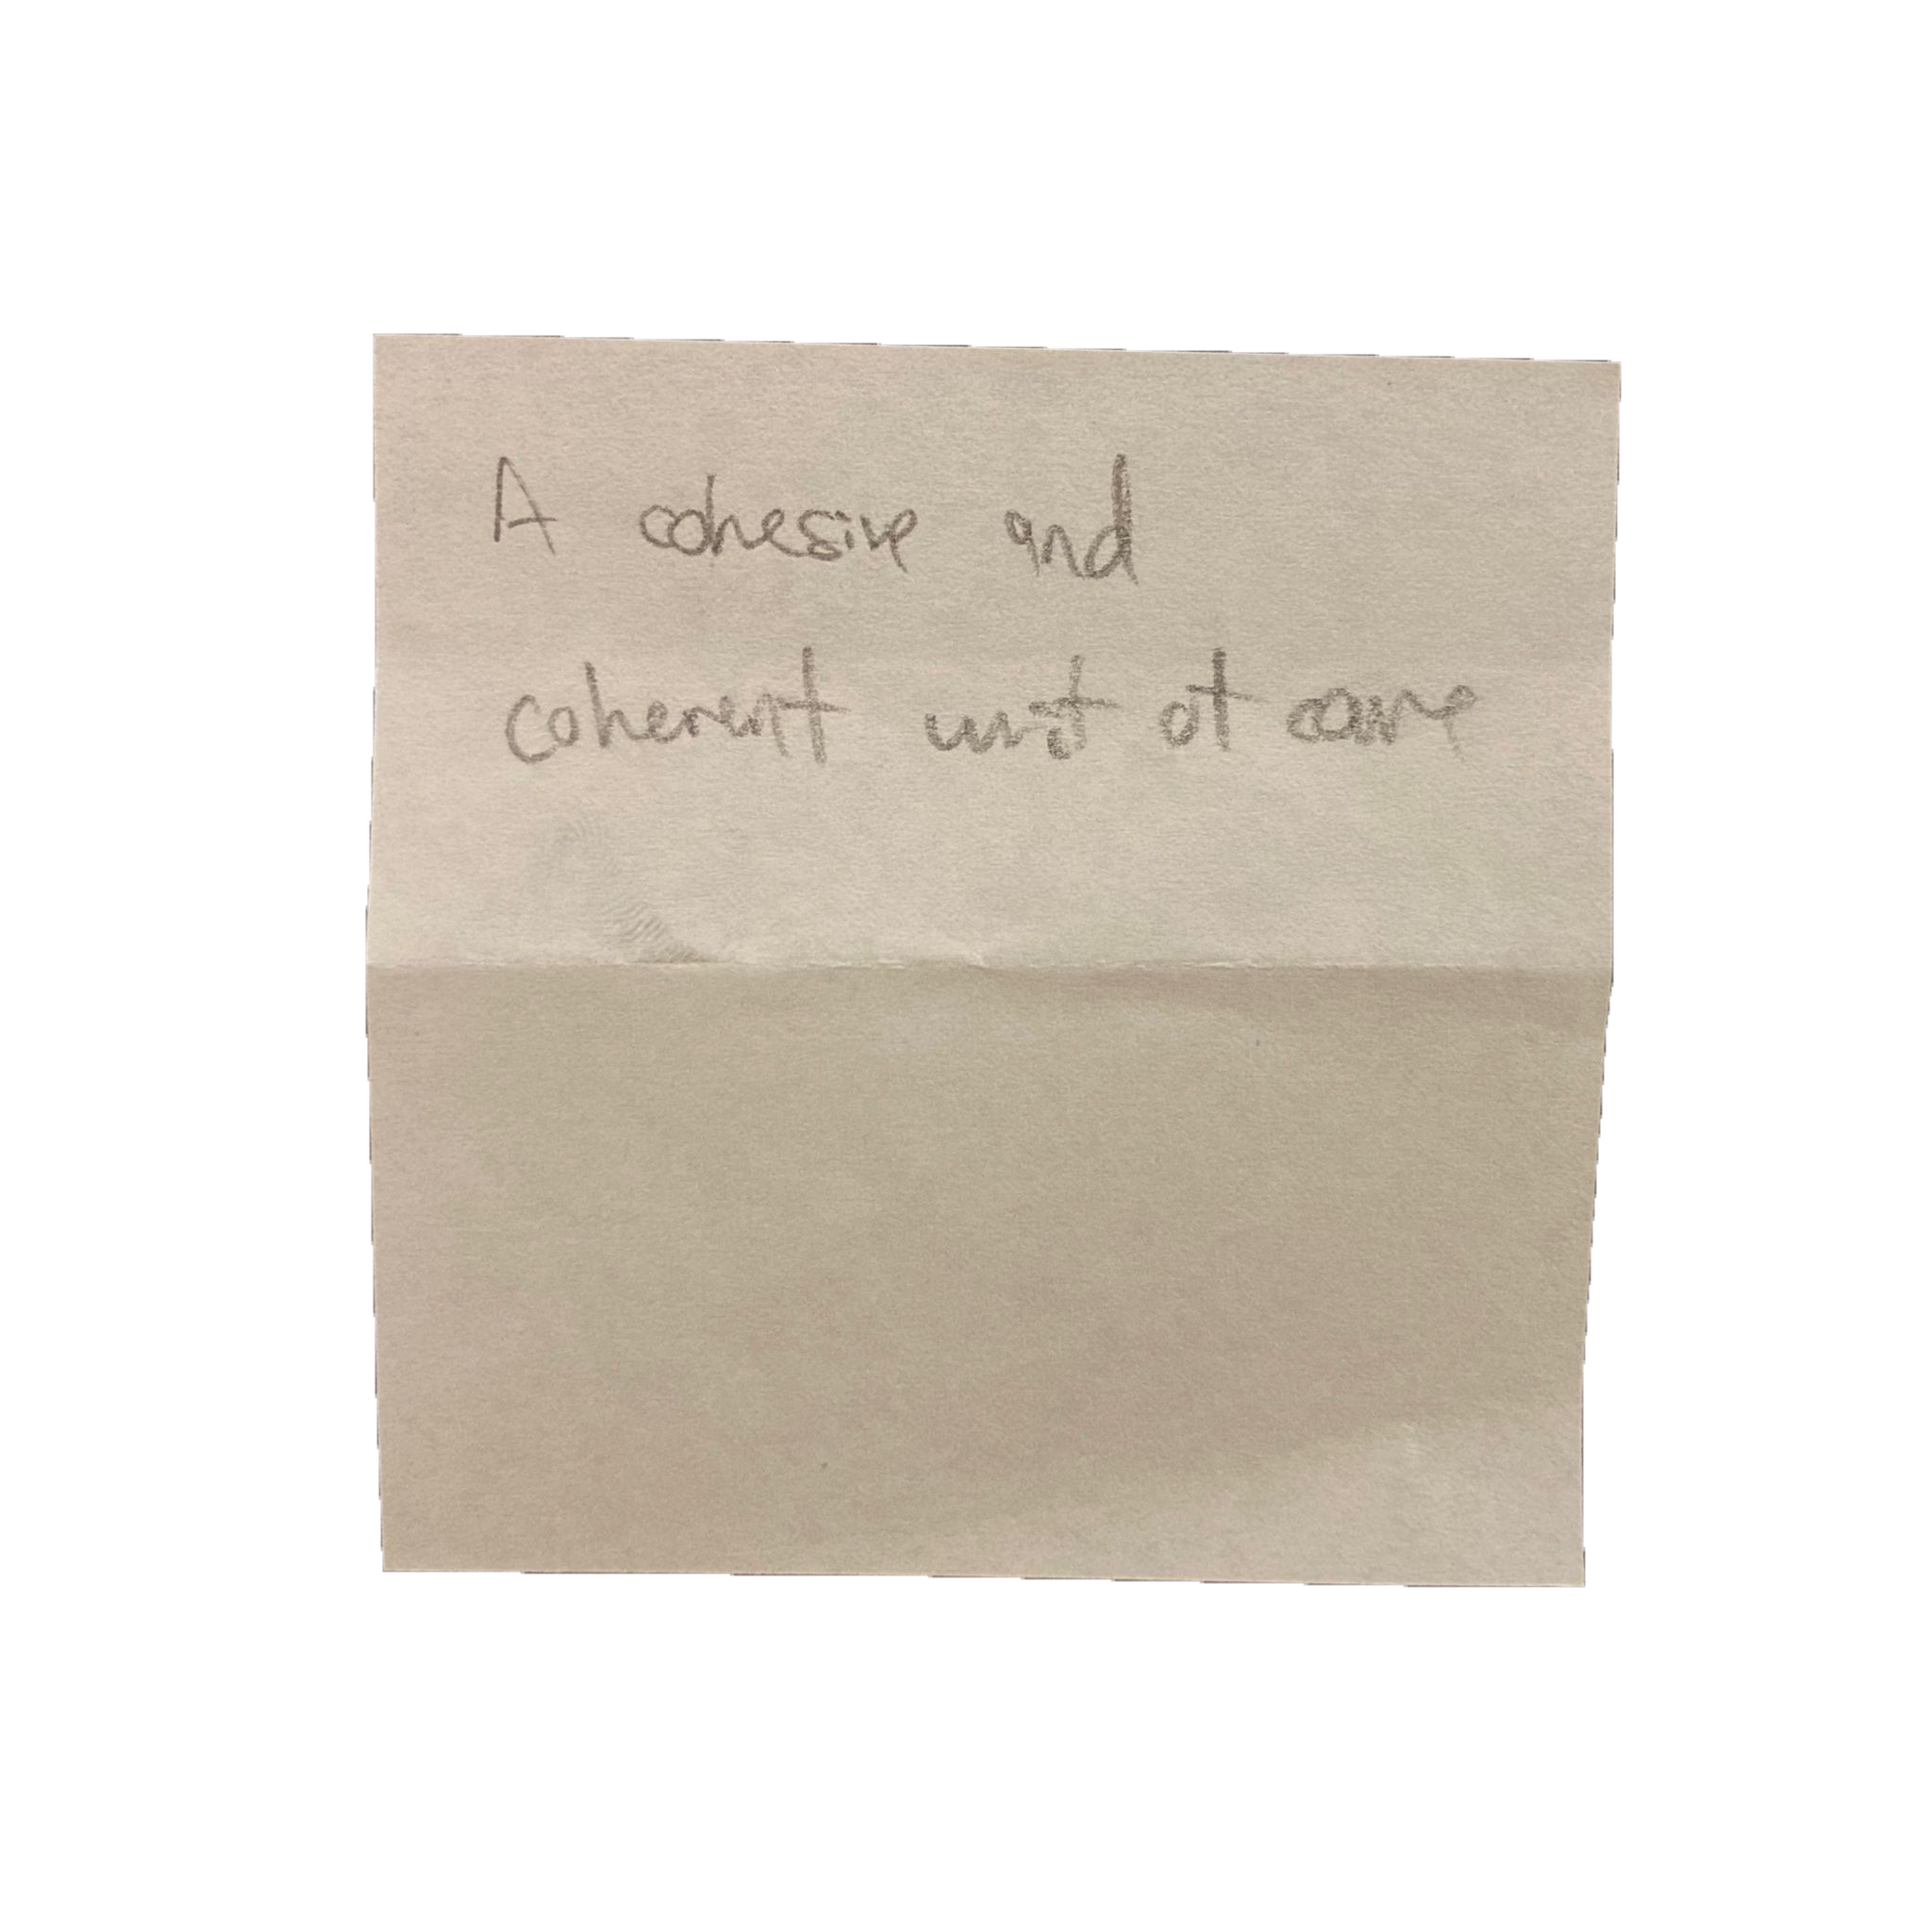 A cohesive and
coherent unit of care